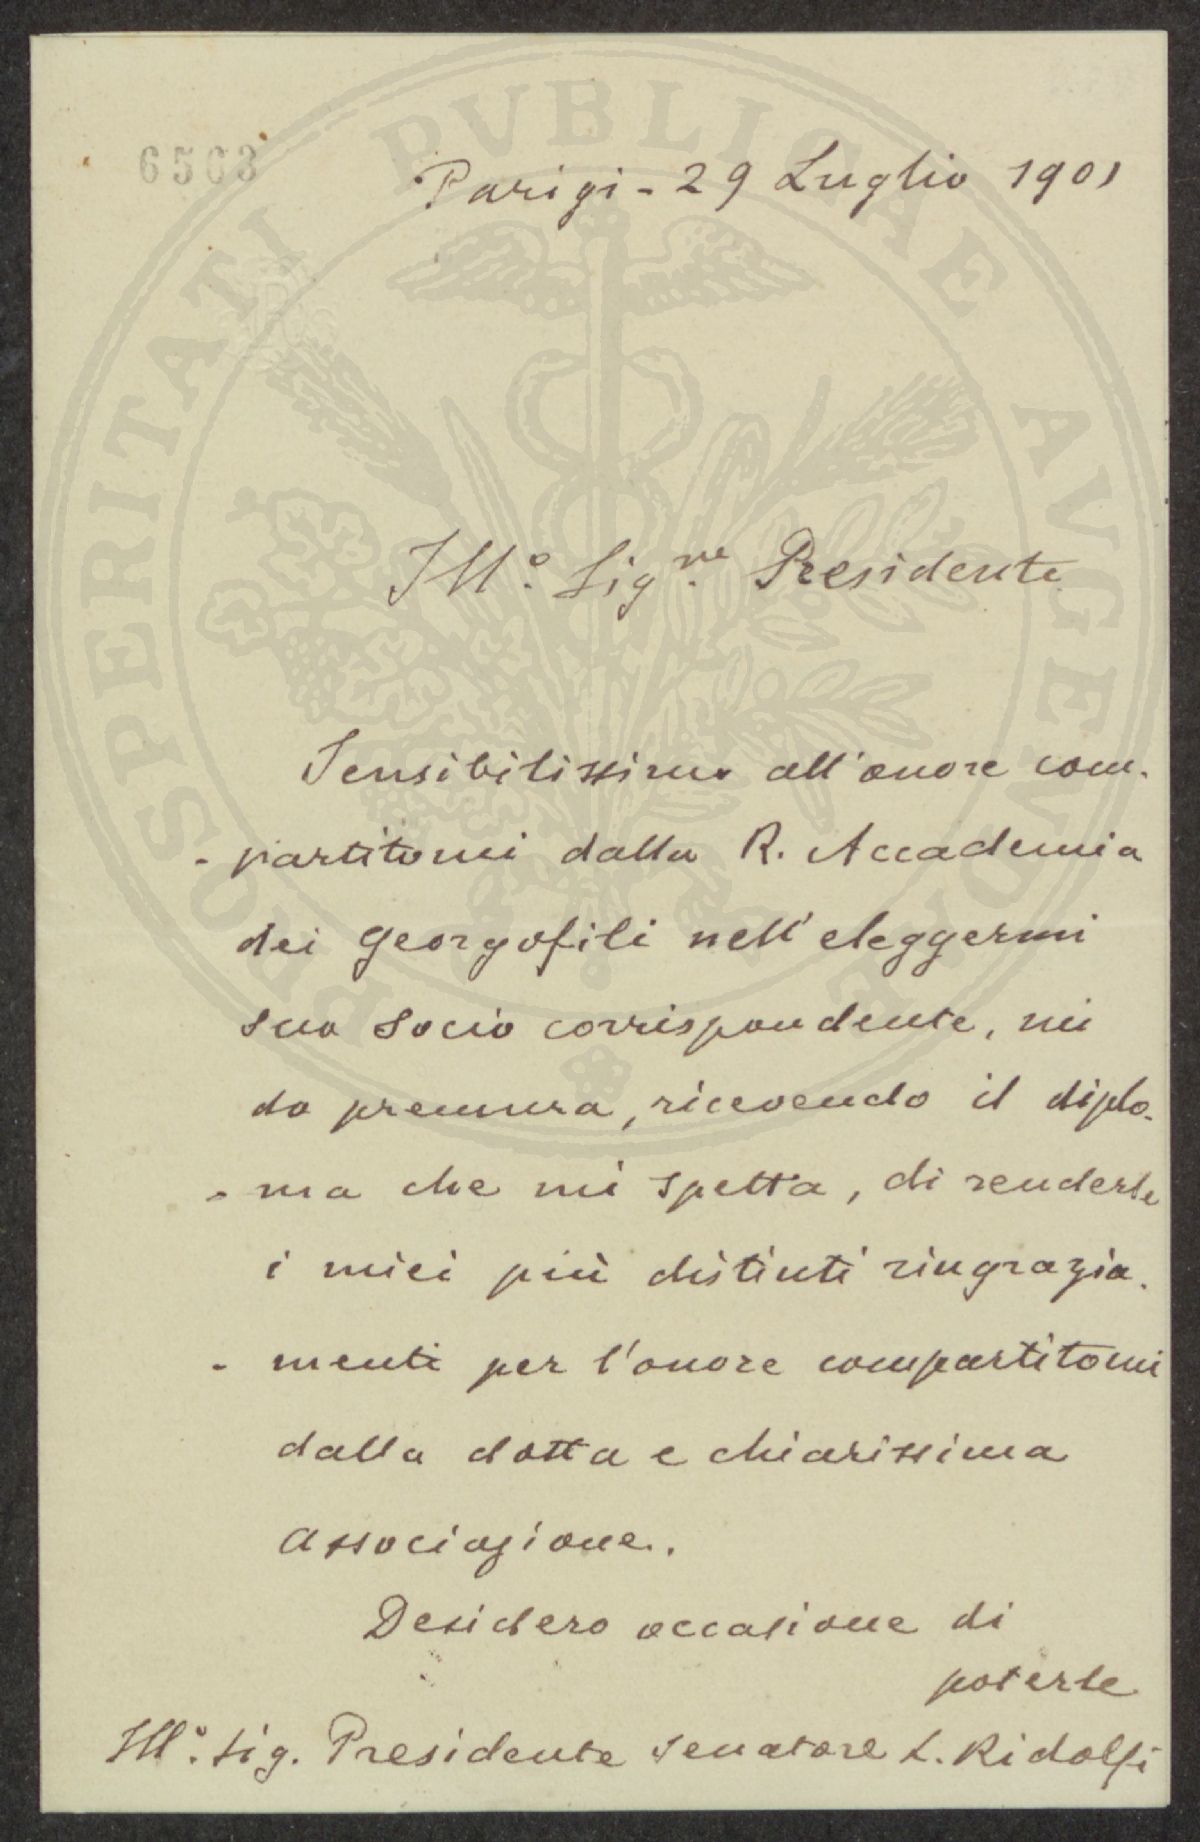 6563
Parigi - 29 Luglio 1901
Ill.º Sig.re Presidente
Sensibilissimo all'onore com-
- partitomi dalla R. Accademia
dei Georgofili nell'eleggermi
suo socio corrispondente, mi
do premura, ricevendo il diplo-
- ma che mi spetta, di renderle
i miei più distinti ringrazia-
- menti per l'onore compartitomi
dalla dotta e chiarissima
associazione.
Desidero occasione di
poterle
Ill.º Sig. Presidente Senatore L. Ridolfi
PROSPERITATI PVBLICAE AVGENDAE